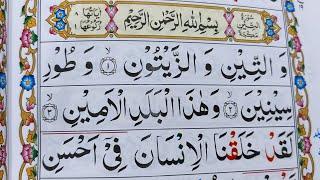 بِسْمِ اللهِ الرَّحْمٰنِ الرَّحِيْمِ
وَالتِّيْنِ وَالزَّيْتُوْنِ ۙ﴿۱﴾ وَطُوْرِ
سِيْنِيْنَ ۙ﴿۲﴾ وَهٰذَا الْبَلَدِ الْاَمِيْنِ ۙ﴿۳﴾
لَقَدْ خَلَقْنَا الْاِنْسَانَ فِيْۤ اَحْسَنِ